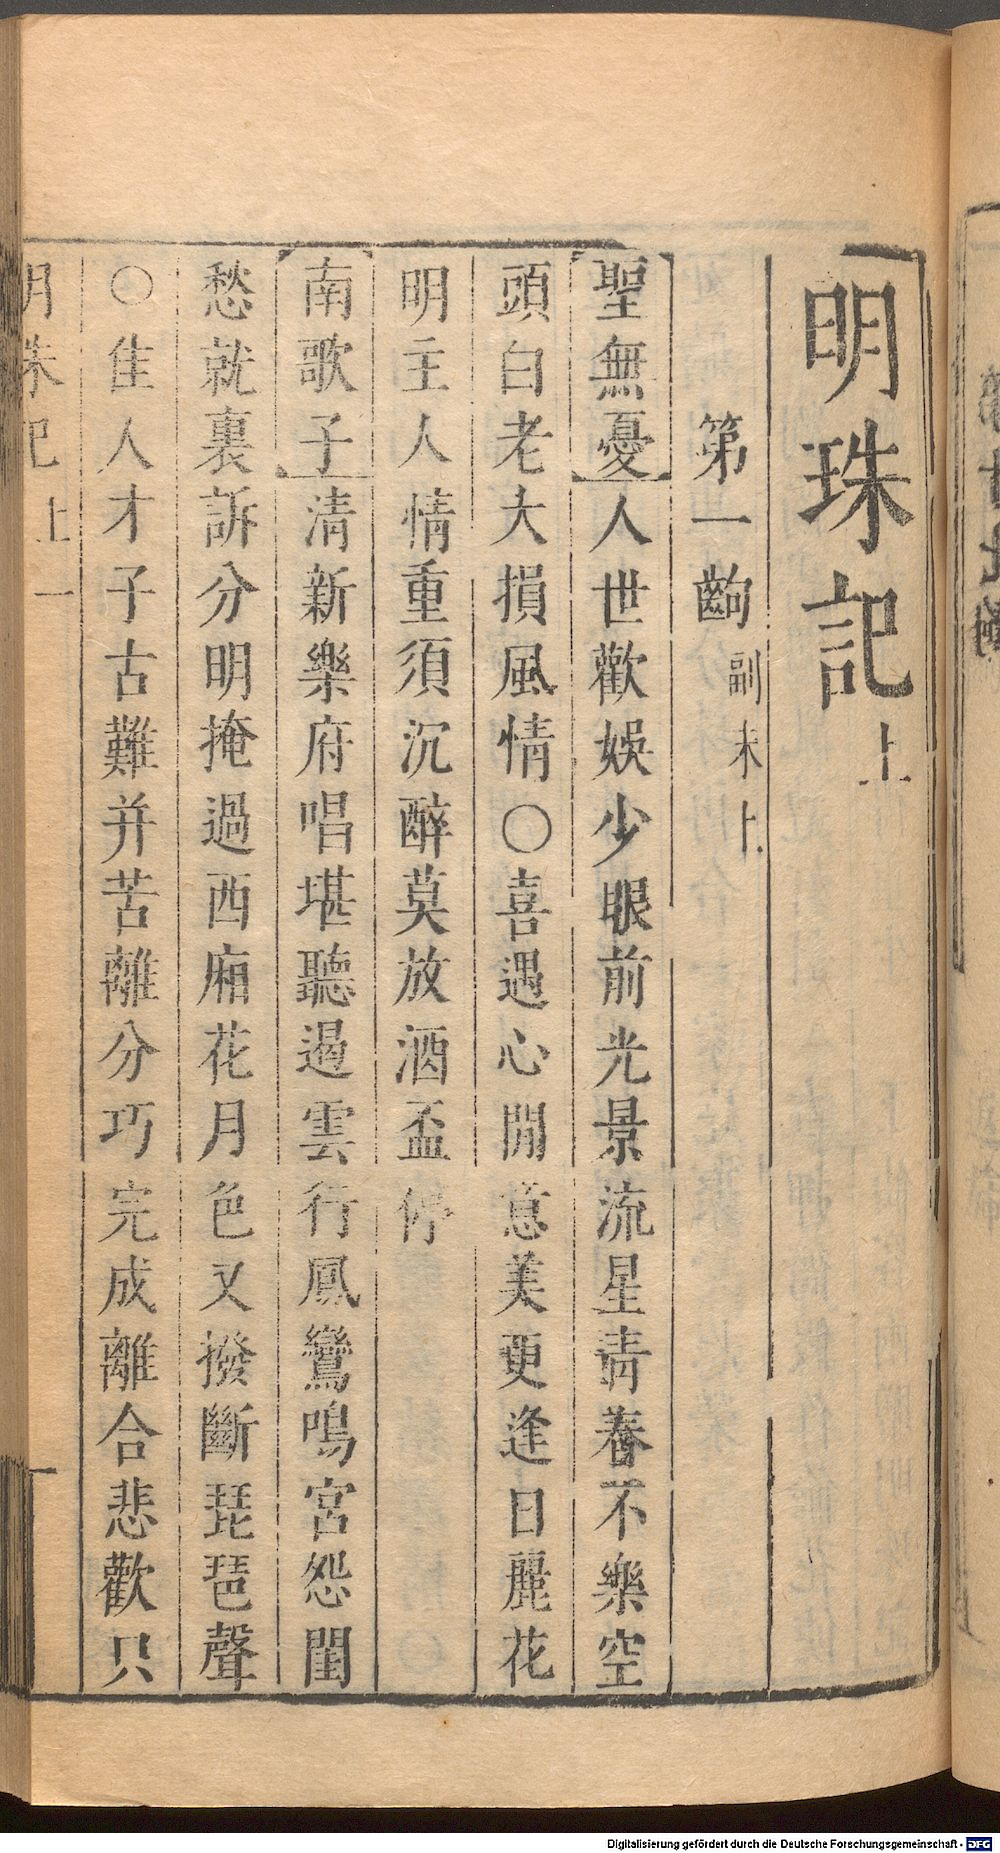 明珠記上
第一齣副末上
聖無憂人世歡娛少眼前光景流星青春不樂空
頭白老大損風情○喜遇心閒意美更逢日麗花
明主人情重須沉醉莫放酒盃停
南歌子清新樂府唱堪聽遏雲行鳳鸞鳴宮怨閨
愁就裏訴分明掩過西廂花月色又撥斷琵琶聲
○佳人才子古難并苦離分巧完成離合悲歡只
明珠記 上 一
Digitalisierung gefördert durch die Deutsche Forschungsgemeinschaft - DFG